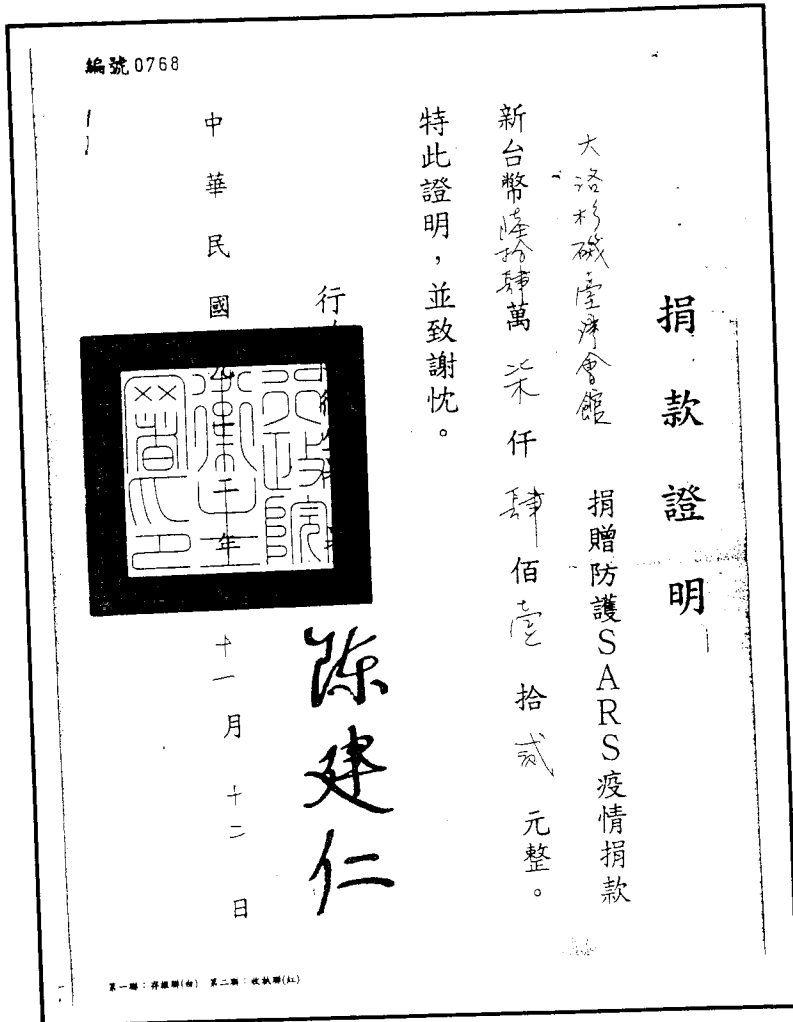 編號0768
捐款證明
大洛杉磯臺灣會館 捐贈防護SARS疫情捐款
新台幣陸拾肆萬柒仟肆佰壹拾貳元整。
特此證明,並致謝忱。
行政院衛生署
陳建仁
中華民國九十二年十一月十二日
第一聯:存根聯(白) 第二聯:收執聯(紅)